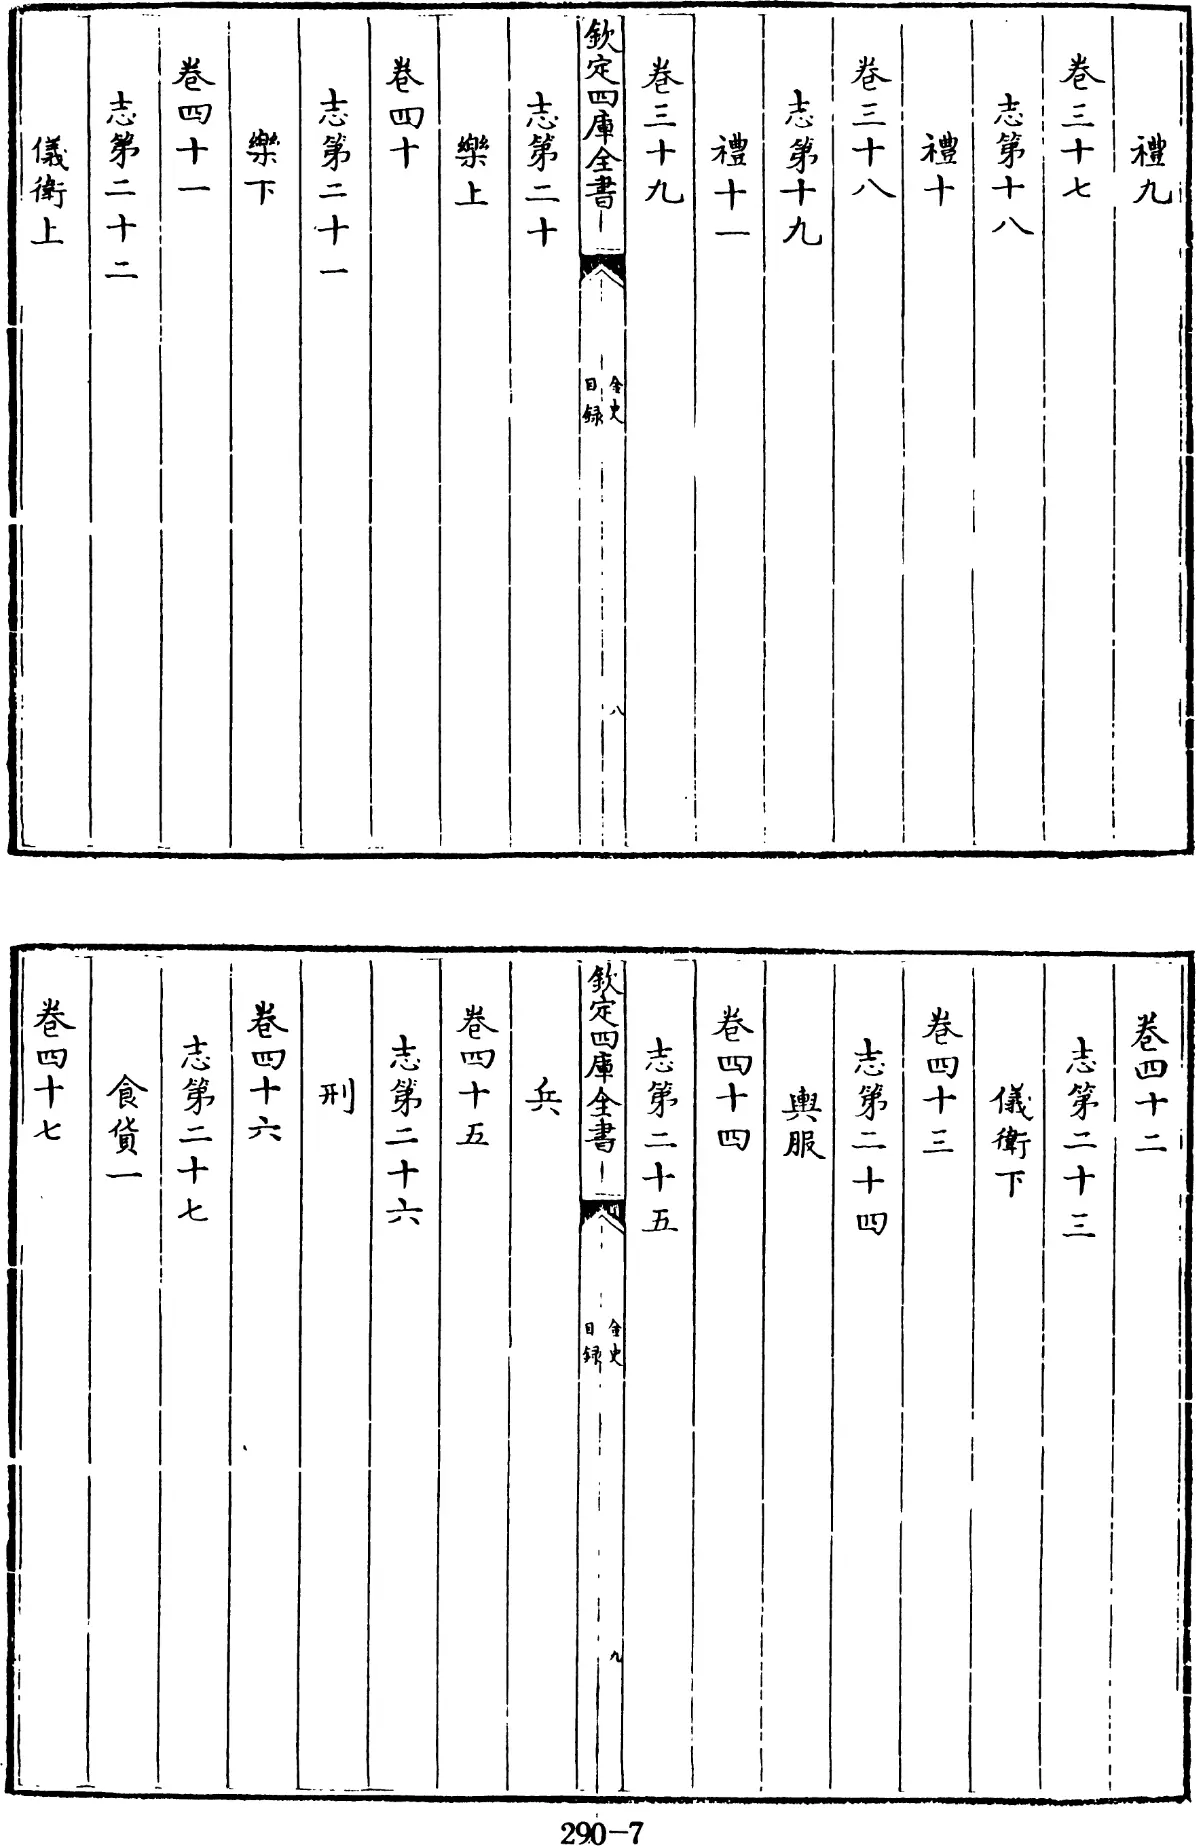 禮九
卷三十七
志第十八
禮十
卷三十八
志第十九
禮十一
卷三十九
欽定四庫全書
金史
目録
八
志第二十
樂上
卷四十
志第二十一
樂下
卷四十一
志第二十二
儀衛上
卷四十二
志第二十三
儀衛下
卷四十三
志第二十四
輿服
卷四十四
志第二十五
欽定四庫全書
金史
目録
九
兵
卷四十五
志第二十六
刑
卷四十六
志第二十七
食貨一
卷四十七
290-7